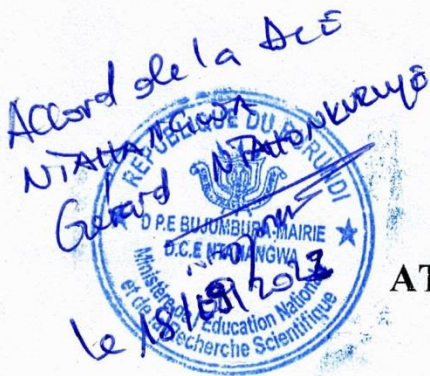 Accord de la DCE
NTAHANGWA
Gérard NTAHONKURIYE
REPUBLIQUE DU BURUNDI
D P.E BUJUMBURA-MAIRIE
D.C.E NTAHANGWA
Ministère de l'Education Nationale
et de la Recherche Scientifique
le 18/
AT